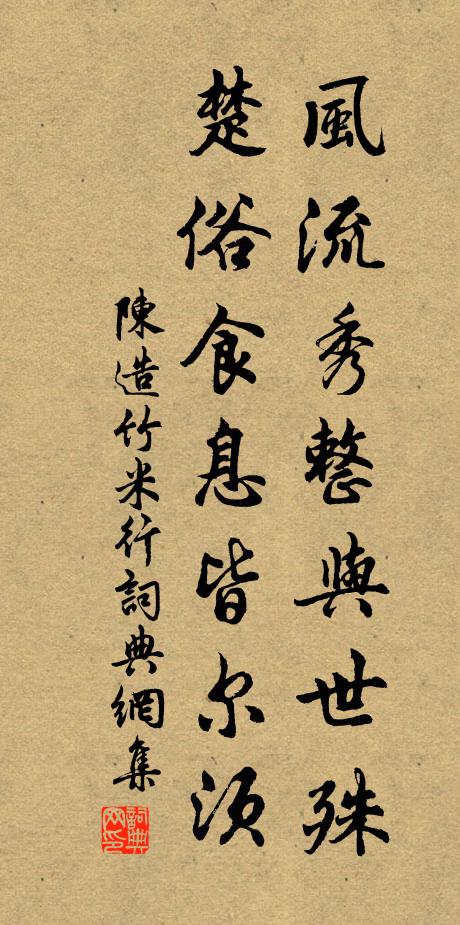 風流秀整與世殊
楚俗食息皆尔須
陳造竹米行詞典網集
詞典网印